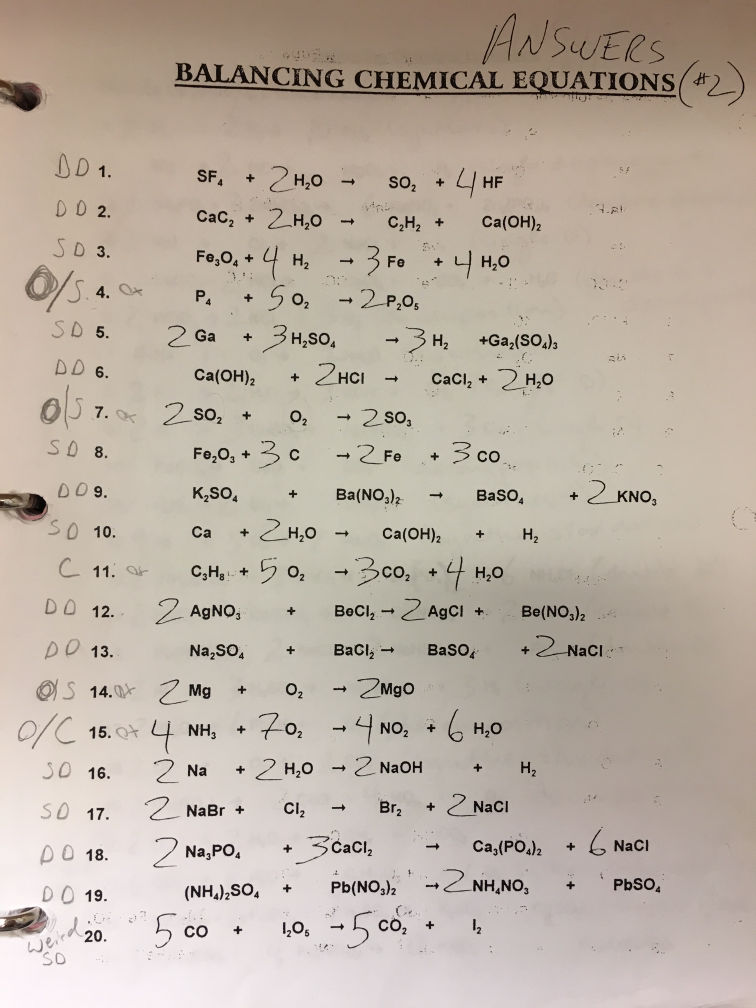 ANSWERS
BALANCING CHEMICAL EQUATIONS (#2)
DD 1. SF₄ + 2 H₂O → SO₂ + 4 HF
DD 2. CaC₂ + 2 H₂O → C₂H₂ + Ca(OH)₂
SD 3. Fe₃O₄ + 4 H₂ → 3 Fe + 4 H₂O
O/S 4. ox P₄ + 5 O₂ → 2 P₂O₅
SD 5. 2 Ga + 3 H₂SO₄ → 3 H₂ +Ga₂(SO₄)₃
DD 6. Ca(OH)₂ + 2 HCl → CaCl₂ + 2 H₂O
O/S 7. ox 2 SO₂ + O₂ → 2 SO₃
SD 8. Fe₂O₃ + 3 C → 2 Fe + 3 CO
DD 9. K₂SO₄ + Ba(NO₃)₂ → BaSO₄ + 2 KNO₃
SD 10. Ca + 2 H₂O → Ca(OH)₂ + H₂
C 11. ox C₃H₈ + 5 O₂ → 3 CO₂ + 4 H₂O
DD 12. 2 AgNO₃ + BeCl₂ → 2 AgCl + Be(NO₃)₂
DD 13. Na₂SO₄ + BaCl₂ → BaSO₄ + 2 NaCl
O/S 14. ox 2 Mg + O₂ → 2 MgO
O/C 15. ox 4 NH₃ + 7 O₂ → 4 NO₂ + 6 H₂O
SD 16. 2 Na + 2 H₂O → 2 NaOH + H₂
SD 17. 2 NaBr + Cl₂ → Br₂ + 2 NaCl
DD 18. 2 Na₃PO₄ + 3 CaCl₂ → Ca₃(PO₄)₂ + 6 NaCl
DD 19. (NH₄)₂SO₄ + Pb(NO₃)₂ → 2 NH₄NO₃ + PbSO₄
Weird SD 20. 5 CO + I₂O₅ → 5 CO₂ + I₂